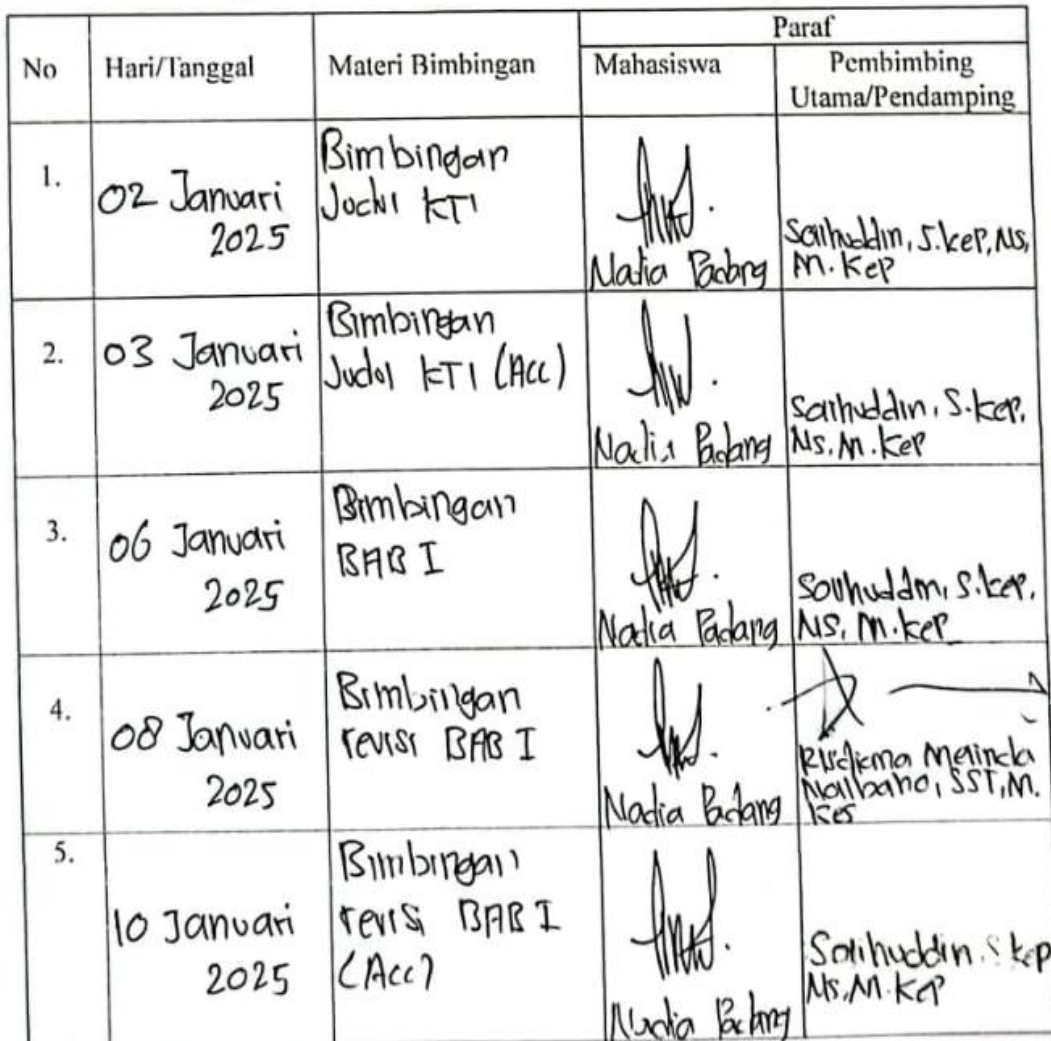 Paraf
No Hari/Tanggal Materi Bimbingan Mahasiswa Pembimbing
Utama/Pendamping
1. 02 Januari
2025
Bimbingan
Judul KTI
Nadia Padang
Saihuddin, S.kep, Ns,
M. Kep
2. 03 Januari
2025
Bimbingan
Judul KTI (Acc)
Nadia Padang
Saihuddin, S.kep,
Ns. M. Kep
3. 06 Januari
2025
Bimbingan
BAB I
Nadia Padang
Saihuddin, S.kep,
NS, M.kep
4. 08 Januari
2025
Bimbingan
revisi BAB I
Nadia Padang
Melinda
SST, M.
Kes
5. 10 Januari
2025
Bimbingan
revisi BAB I
(Acc)
Nadia Padang
Saihuddin, S kep
Ns, M. Kep